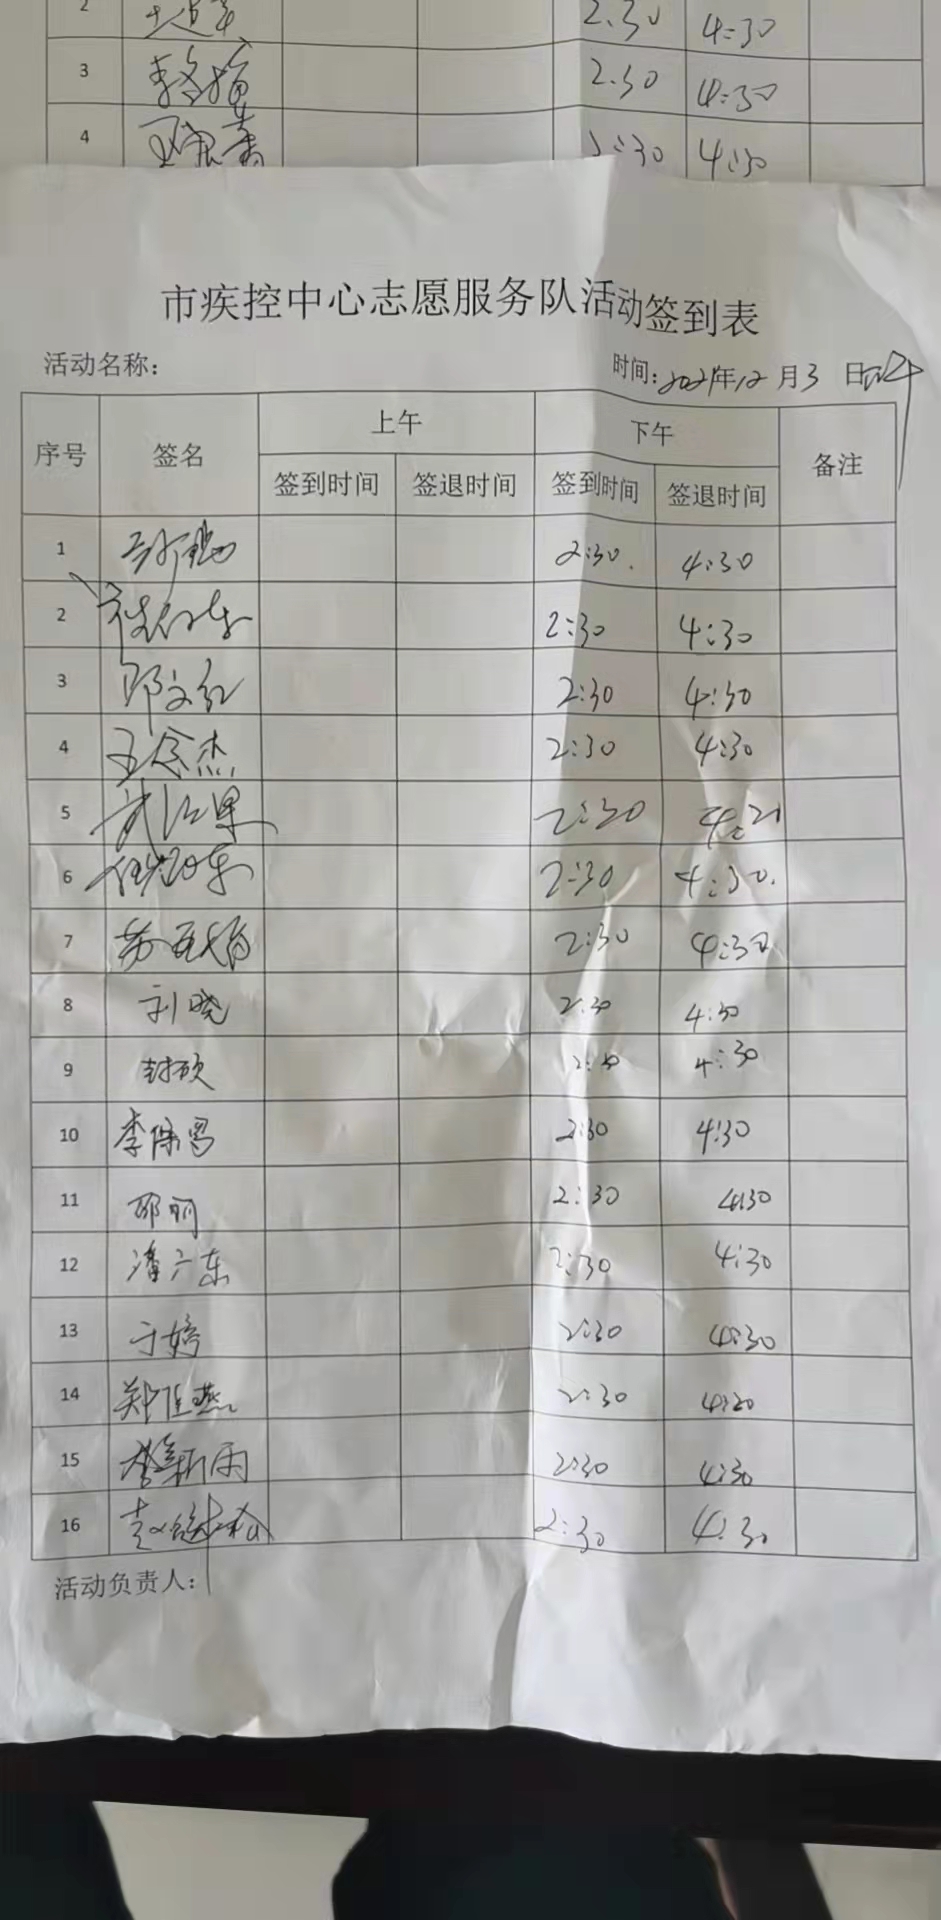 2 2:30 4:30
3 2:30 4:30
4 2:30 4:30
市疾控中心志愿服务队活动签到表
活动名称: 时间: 2021年12月3日
序号 签名 上午 下午 备注
签到时间 签退时间 签到时间 签退时间
1 2:30. 4:30
2 2:30 4:30
3 邓文红 2:30 4:30
4 王念杰 2:30 4:30
5 2:30 4:21
6 2:30 4:30.
7 2:30 4:30
8 刘晓 2:30 4:30
9 封硕 2:30 4:30
10 李保昌 2:30 4:30
11 邵丽 2:30 4:30
12 潘广东 2:30 4:30
13 于婷 2:30 4:30
14 郑佳燕 2:30 4:20
15 2:30 4:30
16 2:30 4:30
活动负责人: